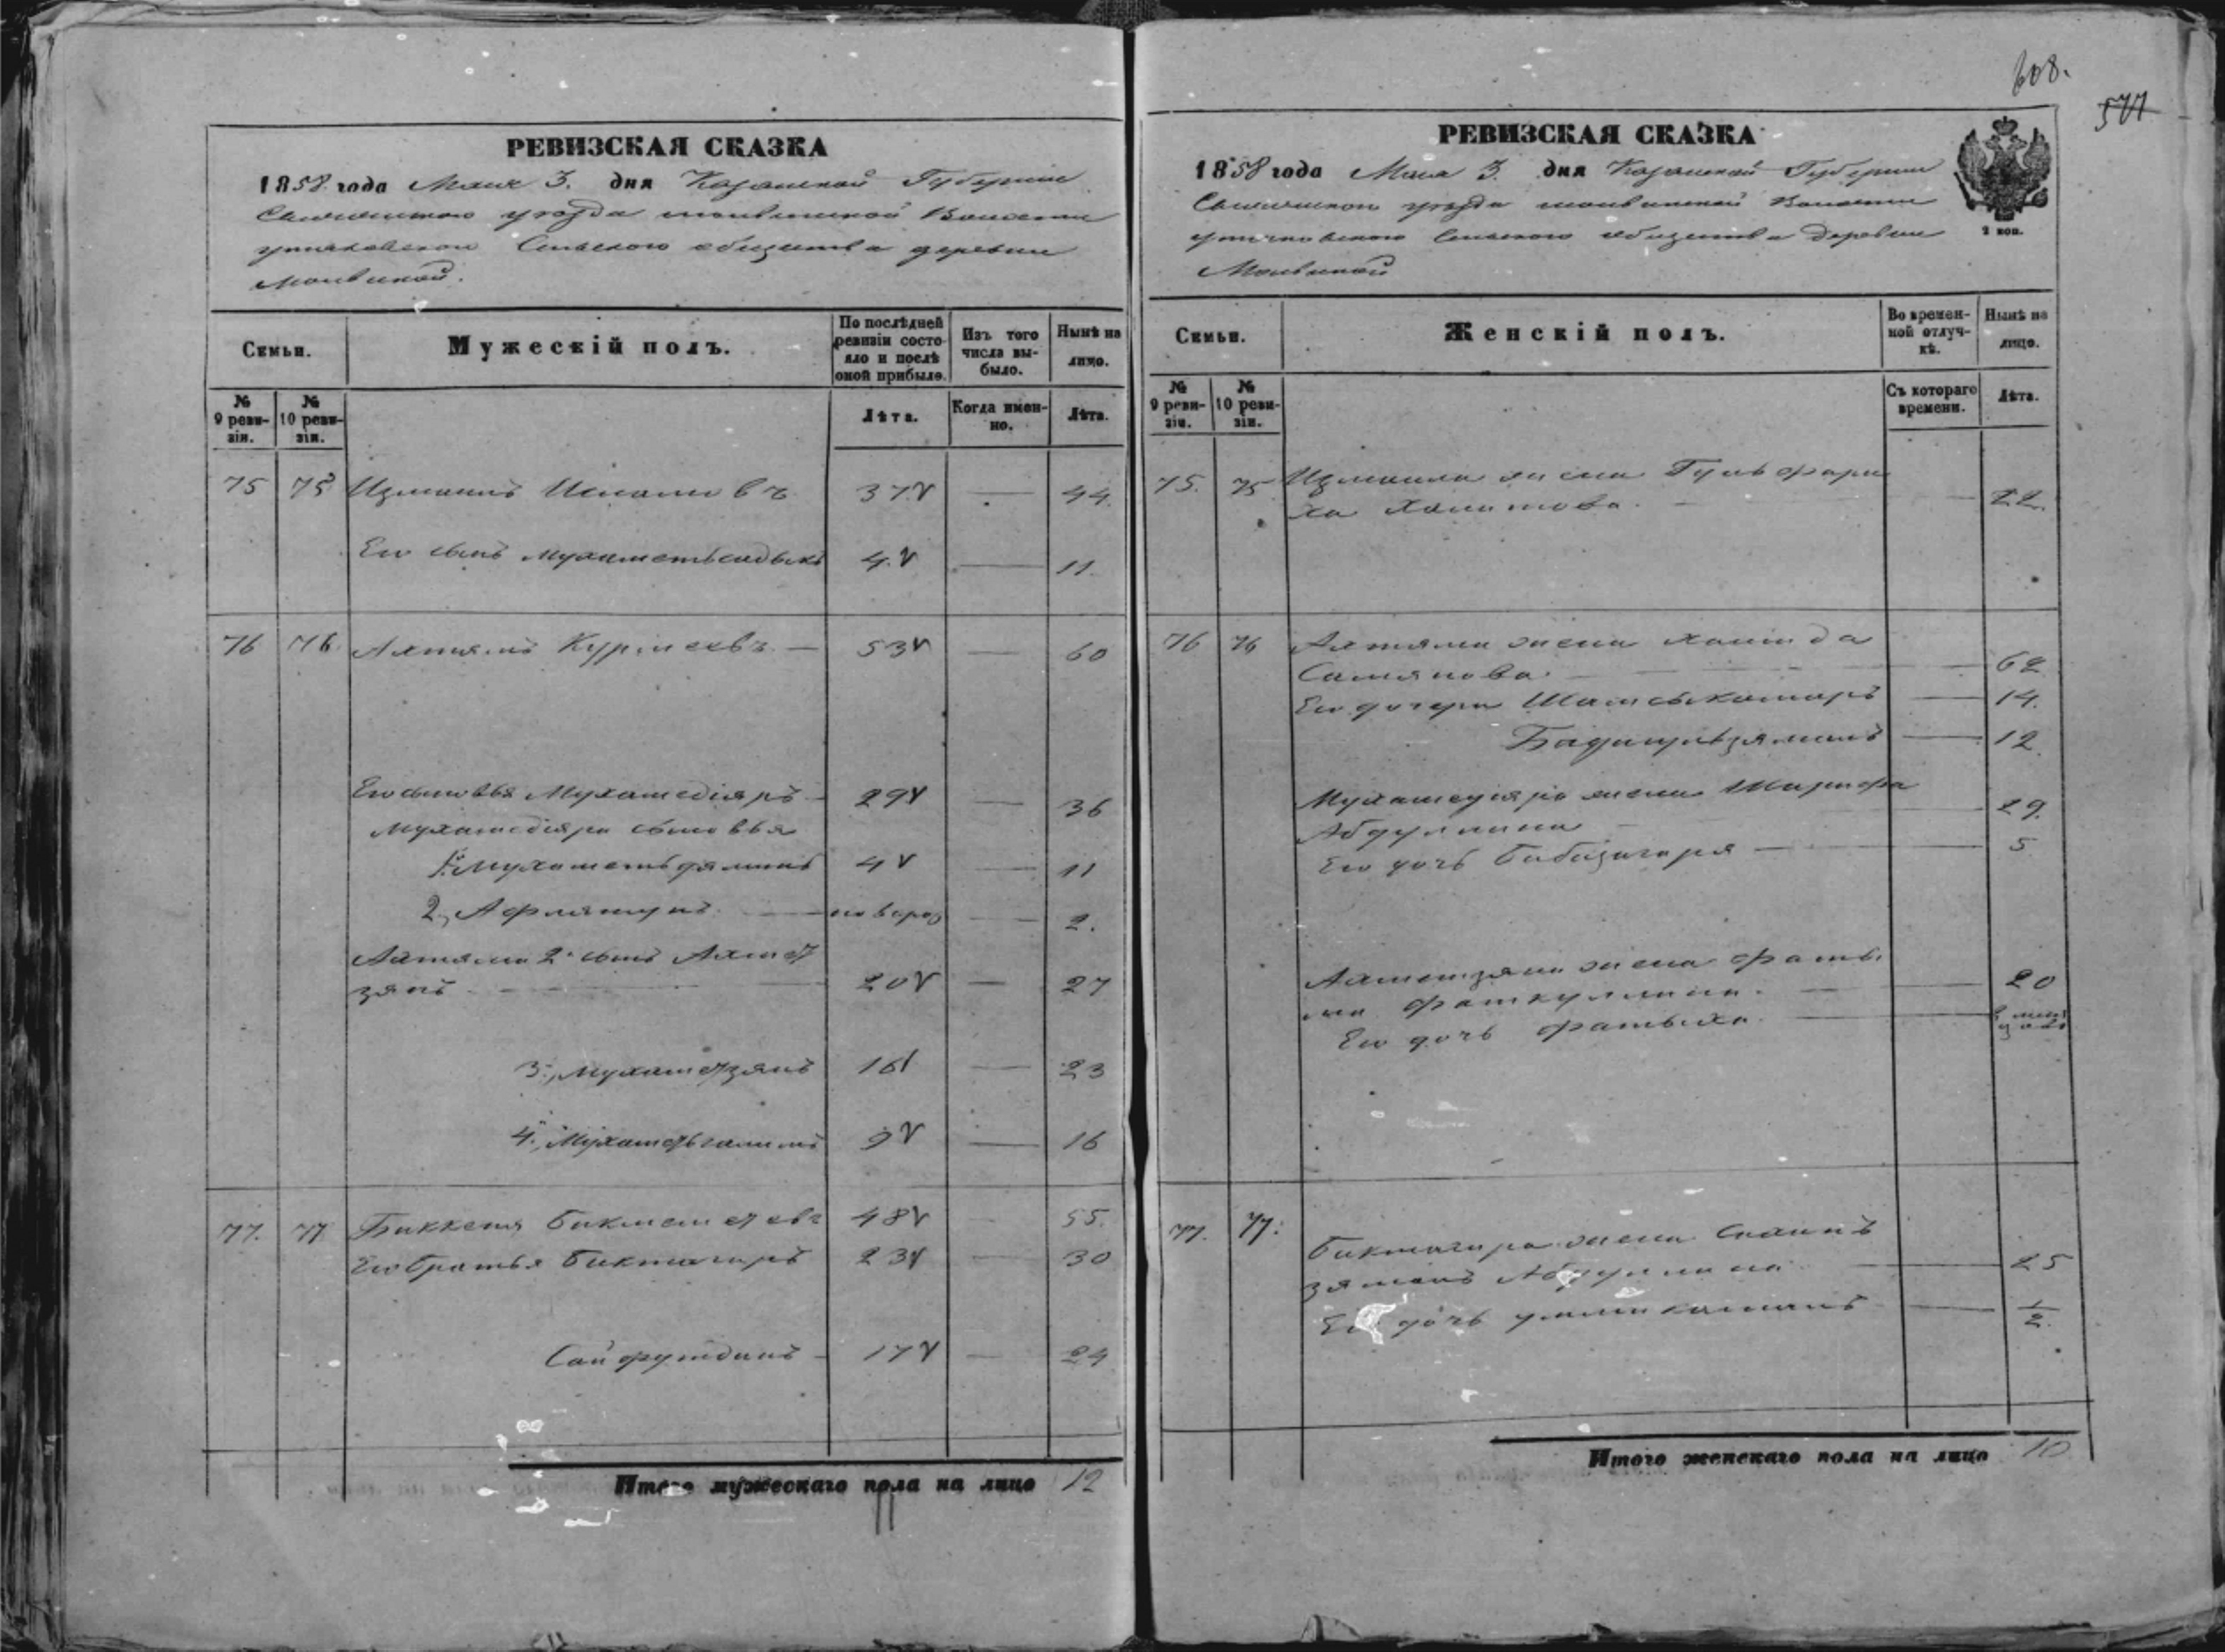 РЕВИЗСКАЯ СКАЗКА
1858 года Маия 3. дня Казанской Губернии
Свияжскаго уезда Волости
Сельского общества деревни
По послѣдней ревизіи состояло и послѣ оной прибыло.
Изъ того числа выбыло.
Нынѣ на лицо.
Семьи.
Мужескій полъ.
№ 9 ревизіи.
№ 10 ревизіи.
Лѣта.
Когда именно.
Лѣта.
75 75 Измаилъ 37 — 44.
Его сынъ Мухаметьсадыкъ 4. — 11.
76 76 Ахтямъ — 53 — 60
Его сыновья Мухамедіяръ 29 — 36
Мухамедіяра сыновья
1. Мухаметьзяминъ 4 — 11
2, Афлятунъ — новорож — 2.
Ахтяма 2й сынъ Ахмет
зянъ — 20 — 27
3., Мухаметзянъ 16 — 23
4., Мухаметьгалимъ 9 — 16
77. 77 Биккеня Бикмеметевъ 48 — 55.
Его братья Биктагиръ 23 — 30
Сайфутдинъ 17 — 24
Итого мужескаго пола на лицо 12
608.
571
РЕВИЗСКАЯ СКАЗКА
2 коп.
1858 года Маия 3. дня Казанской Губернии
Свияжскаго уезда Волости
Сельского общества деревни
Семьи.
Женскій полъ.
Во временной отлучкѣ.
Нынѣ на лицо.
№ 9 ревизіи.
№ 10 ревизіи.
Съ котораго времени.
Лѣта.
75. 75 Измаила жена Гульфари
ха Хамитова. — 22.
76 76 Ахтяма жена Хамида
— 62
Его дочери Шамсыкамаръ — 14.
Бадигульзяманъ — 12.
Мухамедіяра жена Шарифа
Абдуллина — 29.
Его дочь Бибизагиря — 5
Ахметзяна жена Фаты
ма Фаткуллина. — 20
Его дочь Фатыха. —
77. 77. Биктагира жена
зяманъ Абдуллина — 25
Его дочь — 1/2.
Итого женскаго пола на лицо 10